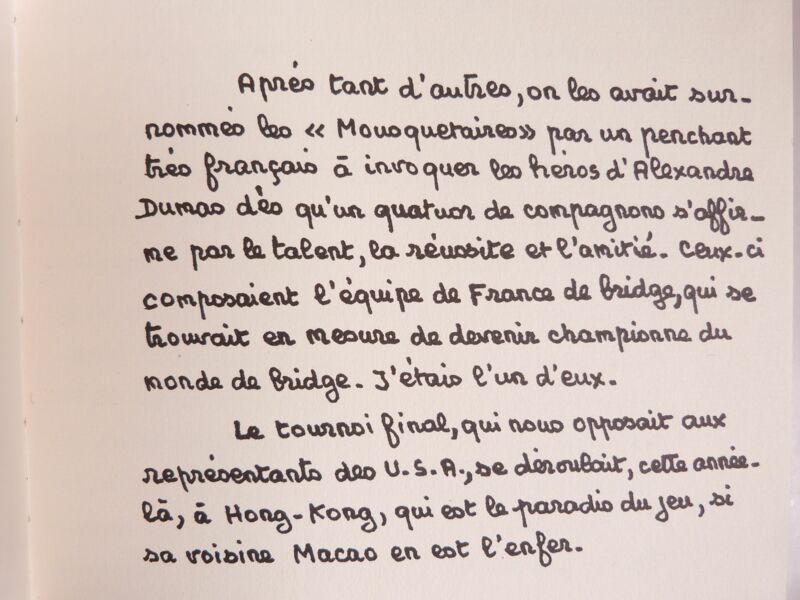 Après tant d'autres, on les avait sur-
nommés les « Mousquetaires » par un penchant
très français à invoquer les héros d'Alexandre
Dumas dès qu'un quatuor de compagnons s'affir-
me par le talent, la réussite et l'amitié. Ceux-ci
composaient l'équipe de France de bridge, qui se
trouvait en mesure de devenir championne du
monde de bridge. J'étais l'un d'eux.
Le tournoi final, qui nous opposait aux
représentants des U.S.A., se déroulait, cette année-
là, à Hong-Kong, qui est le paradis du jeu, si
sa voisine Macao en est l'enfer.